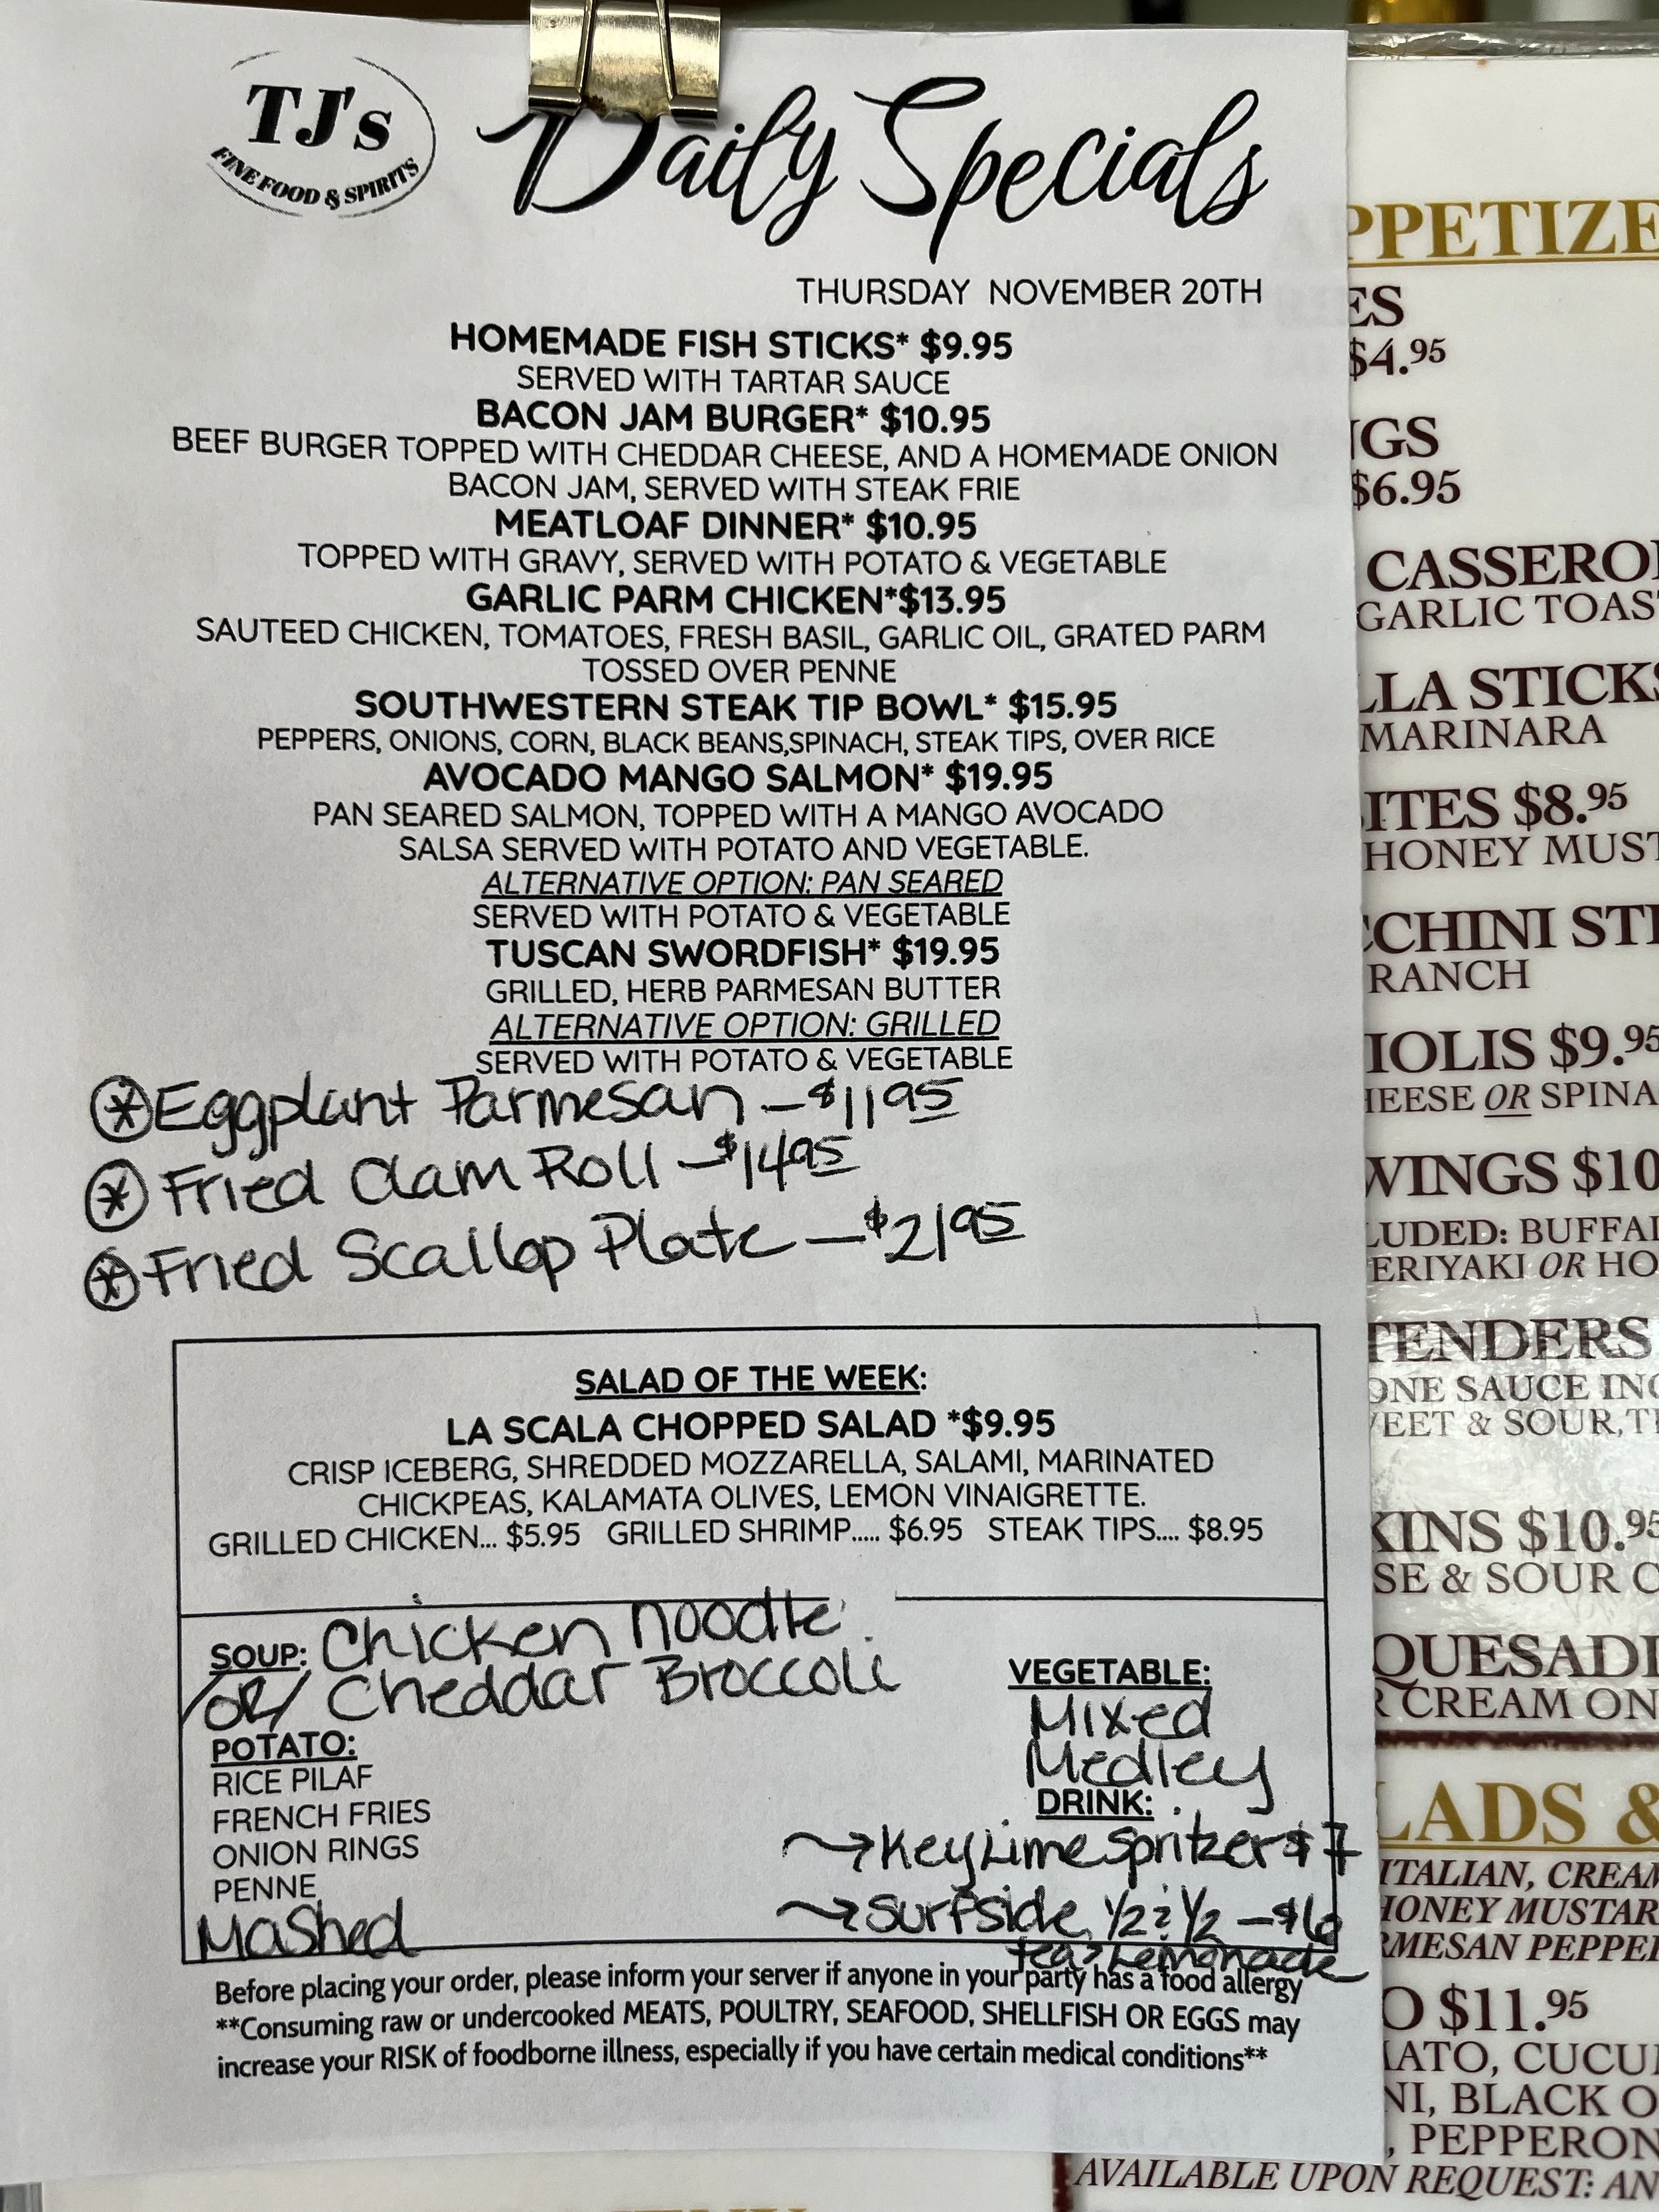 TJ's
FINE FOOD & SPIRITS
Daily Specials
THURSDAY NOVEMBER 20TH
HOMEMADE FISH STICKS* $9.95
SERVED WITH TARTAR SAUCE
BACON JAM BURGER* $10.95
BEEF BURGER TOPPED WITH CHEDDAR CHEESE, AND A HOMEMADE ONION
BACON JAM, SERVED WITH STEAK FRIE
MEATLOAF DINNER* $10.95
TOPPED WITH GRAVY, SERVED WITH POTATO & VEGETABLE
GARLIC PARM CHICKEN*$13.95
SAUTEED CHICKEN, TOMATOES, FRESH BASIL, GARLIC OIL, GRATED PARM
TOSSED OVER PENNE
SOUTHWESTERN STEAK TIP BOWL* $15.95
PEPPERS, ONIONS, CORN, BLACK BEANS,SPINACH, STEAK TIPS, OVER RICE
AVOCADO MANGO SALMON* $19.95
PAN SEARED SALMON, TOPPED WITH A MANGO AVOCADO
SALSA SERVED WITH POTATO AND VEGETABLE.
ALTERNATIVE OPTION: PAN SEARED
SERVED WITH POTATO & VEGETABLE
TUSCAN SWORDFISH* $19.95
GRILLED, HERB PARMESAN BUTTER
ALTERNATIVE OPTION: GRILLED
SERVED WITH POTATO & VEGETABLE
* Eggplant Parmesan - $11 95
* Fried Clam Roll - $14 95
* Fried Scallop Plate - $21 95
SALAD OF THE WEEK:
LA SCALA CHOPPED SALAD *$9.95
CRISP ICEBERG, SHREDDED MOZZARELLA, SALAMI, MARINATED
CHICKPEAS, KALAMATA OLIVES, LEMON VINAIGRETTE.
GRILLED CHICKEN... $5.95 GRILLED SHRIMP..... $6.95 STEAK TIPS.... $8.95
SOUP: Chicken noodle
/OR/ Cheddar Broccoli
POTATO:
RICE PILAF
FRENCH FRIES
ONION RINGS
PENNE
Mashed
VEGETABLE:
Mixed
Medley
DRINK:
→ Key Lime Spritzer $7
→ Surfside 1/2 & 1/2 - $6
tea & Lemonade
Before placing your order, please inform your server if anyone in your party has a food allergy
**Consuming raw or undercooked MEATS, POULTRY, SEAFOOD, SHELLFISH OR EGGS may
increase your RISK of foodborne illness, especially if you have certain medical conditions**
PPETIZE
ES
$4.95
NGS
$6.95
CASSERO
GARLIC TOAS
LLA STICKS
MARINARA
ITES $8.95
HONEY MUST
CCHINI STI
RANCH
IOLIS $9.95
HEESE OR SPINA
WINGS $10
LUDED: BUFFAL
ERIYAKI OR HO
TENDERS
ONE SAUCE INC
EET & SOUR, T
KINS $10.95
SE & SOUR C
QUESADI
R CREAM ON
LADS &
ITALIAN, CREAM
HONEY MUSTAR
RMESAN PEPPE
O $11.95
ATO, CUCU
NI, BLACK O
, PEPPERON
AVAILABLE UPON REQUEST: AN